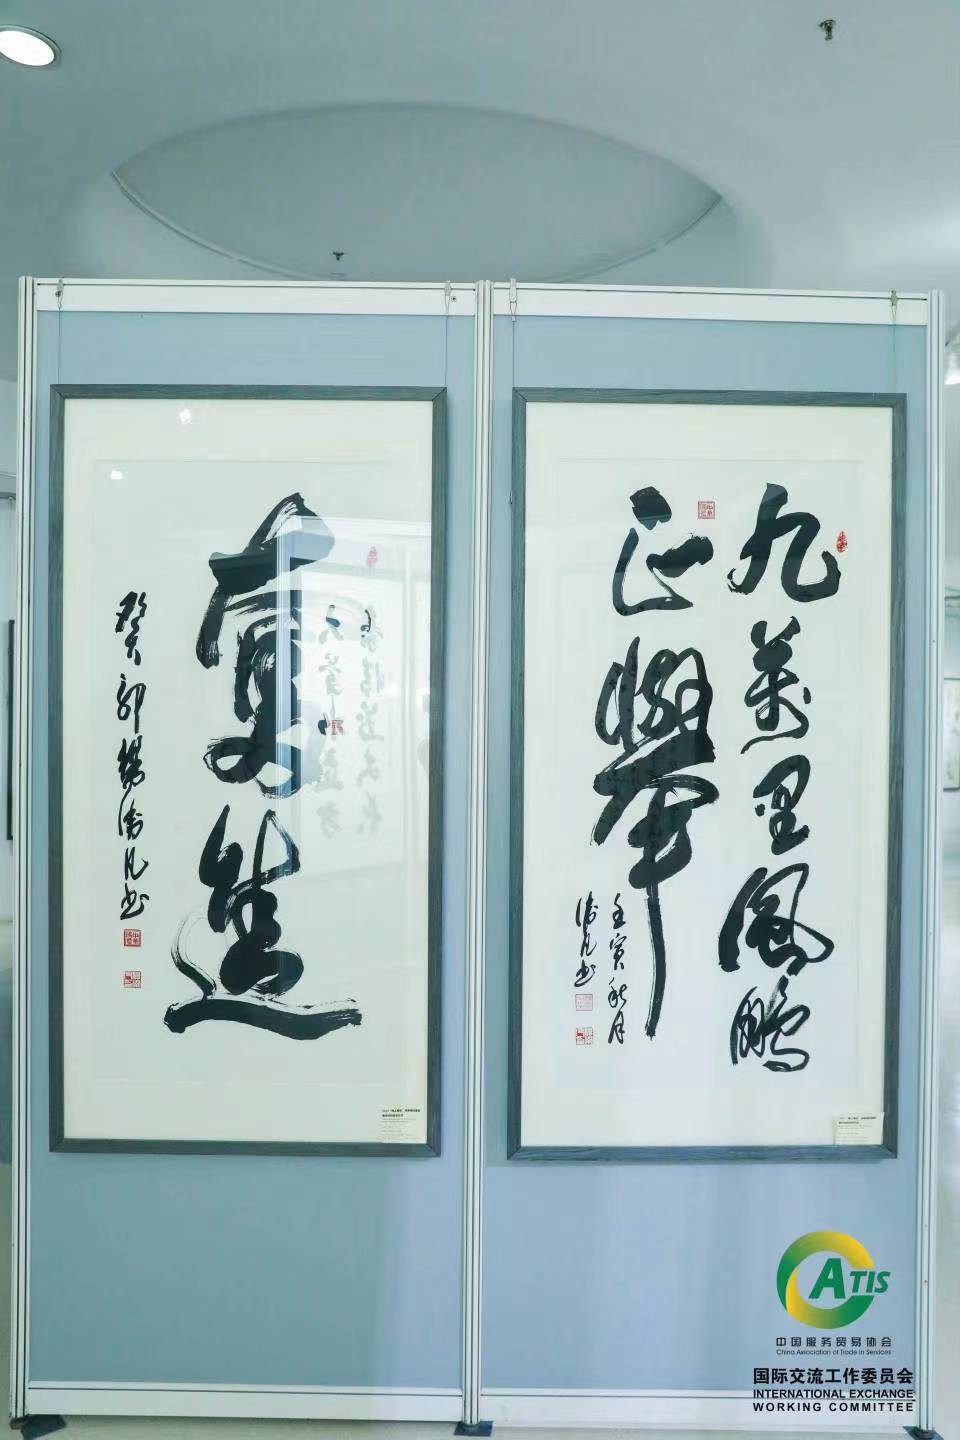 九萬里風鵬
正舉
壬寅秋月
凡书
進
癸卯楊凡书
CATIS
中国服务贸易协会
China Association of Trade in Services
国际交流工作委员会
INTERNATIONAL EXCHANGE
WORKING COMMITTEE